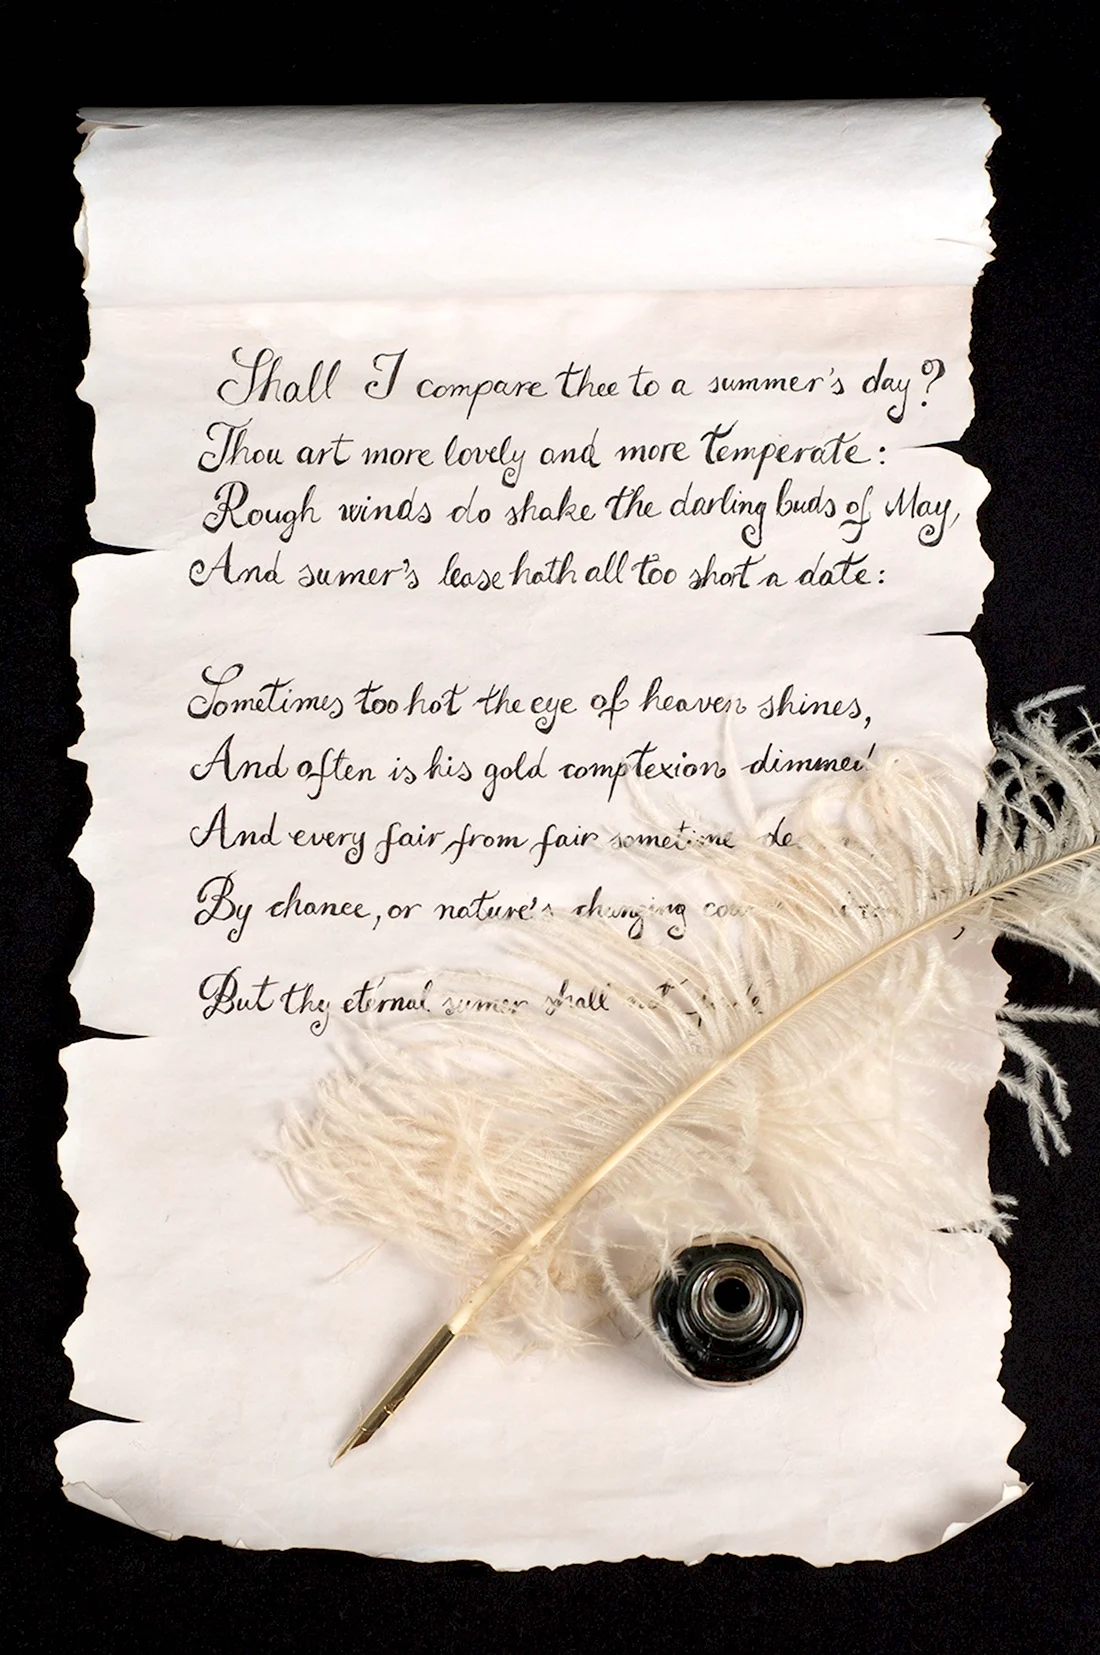 Shall I compare thee to a summer's day?
Thou art more lovely and more temperate:
Rough winds do shake the darling buds of May,
And sumer's lease hath all too short a date:
Sometimes too hot the eye of heaven shines,
And often is his gold complexion dimmed
And every fair from fair sometime
By chance, or nature's changing
But thy eternal sumer shall not